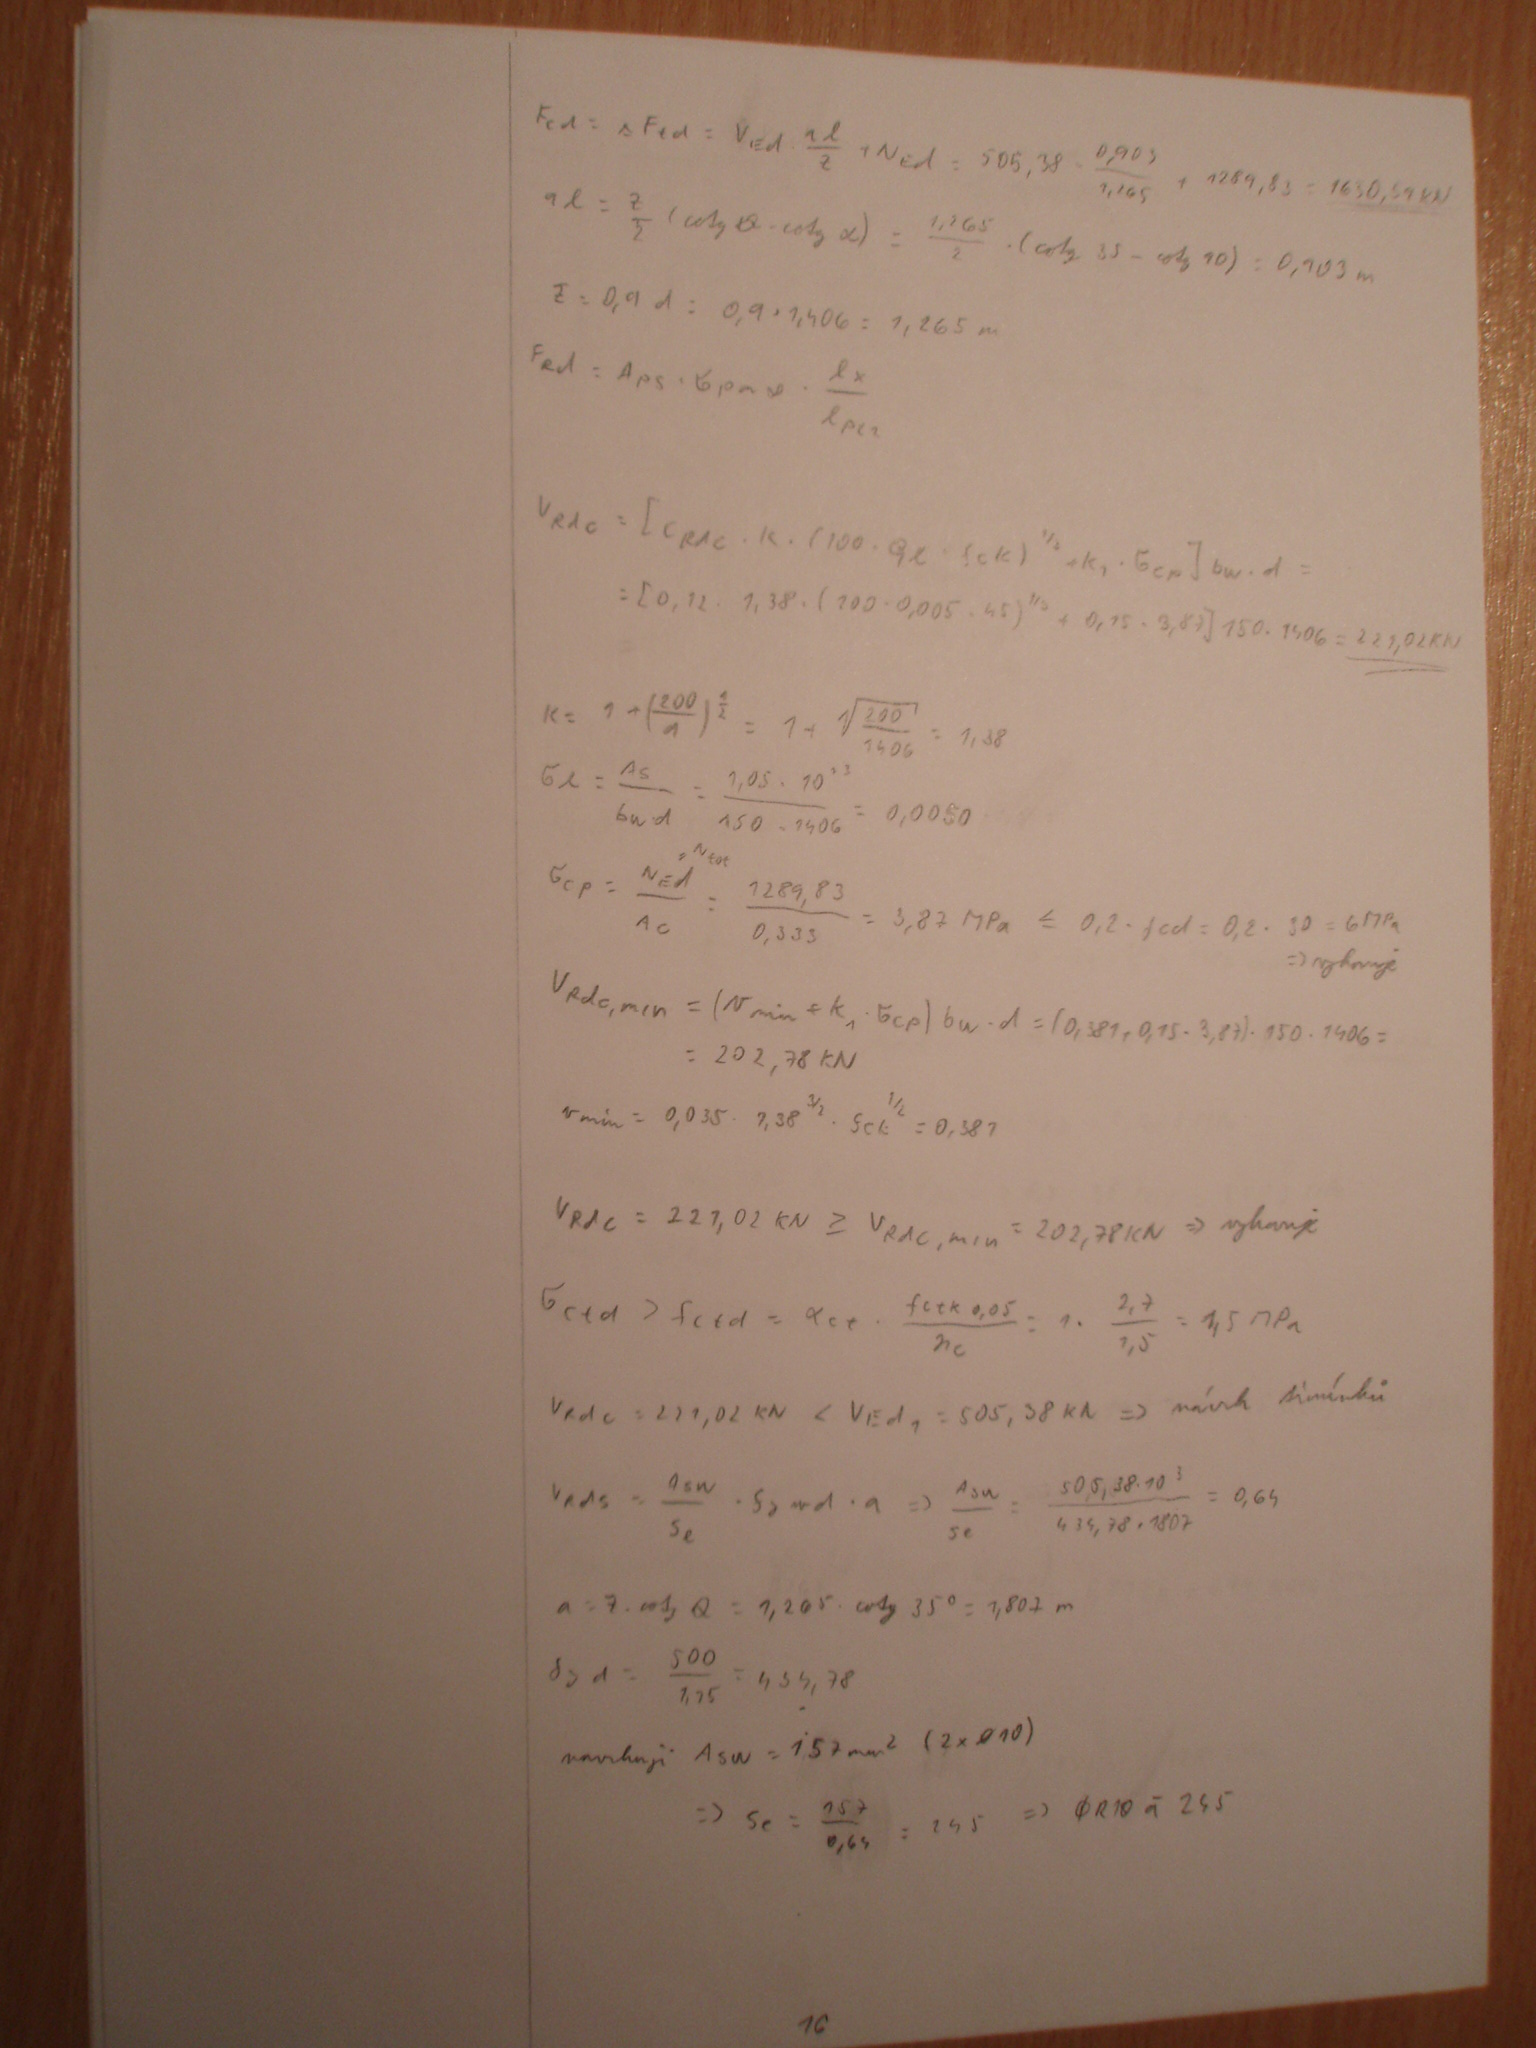 Fcd = ΔFtd = VEd · al/z + NEd = 505,38 · 0,903/1,265 + 1289,83 = 1650,59 kN
al = z/2 (cotg θ - cotg α) = 1,265/2 · (cotg 35 - cotg 90) = 0,903 m
z = 0,9 d = 0,9 · 1,406 = 1,265 m
FRd = Aps · σpmx · lx/lpt2
VRdc = [CRdc · k · (100 · ρl · fck)^1/3 + k1 · σcp] bw · d =
= [0,12 · 1,38 · (100 · 0,005 · 45)^1/3 + 0,15 · 3,87] 150 · 1406 = 221,02 kN
k = 1 + (200/d)^1/2 = 1 + √200/1406 = 1,38
σl = As/bw·d = 1,05 · 10^-3/150 · 1406 = 0,0050
σcp = NEd/Ac = 1289,83/0,333 = 3,87 MPa ≤ 0,2 · fcd = 0,2 · 30 = 6 MPa
= Ntot
=> vyhovuje
VRdc,min = (vmin + k1 · σcp) bw · d = (0,381 + 0,15 · 3,87) · 150 · 1406 =
= 202,78 kN
vmin = 0,035 · 1,38^3/2 · fck^1/2 = 0,381
VRdc = 221,02 kN ≥ VRdc,min = 202,78 kN => vyhovuje
σctd > fctd = αct · fctk 0,05/γc = 1 · 2,7/1,5 = 1,5 MPa
VRdc = 221,02 kN < VEd1 = 505,38 kN => návrh třmínků
VRds = Asw/sl · fywd · a => Asw/sl = 505,38·10^3/434,78 · 1807 = 0,64
a = z · cotg θ = 1,265 · cotg 35° = 1,807 m
fyd = 500/1,15 = 434,78
navrhuji Asw = 157 mm² (2x ø10)
=> sl = 157/0,64 = 245 => φR10 á 245
16